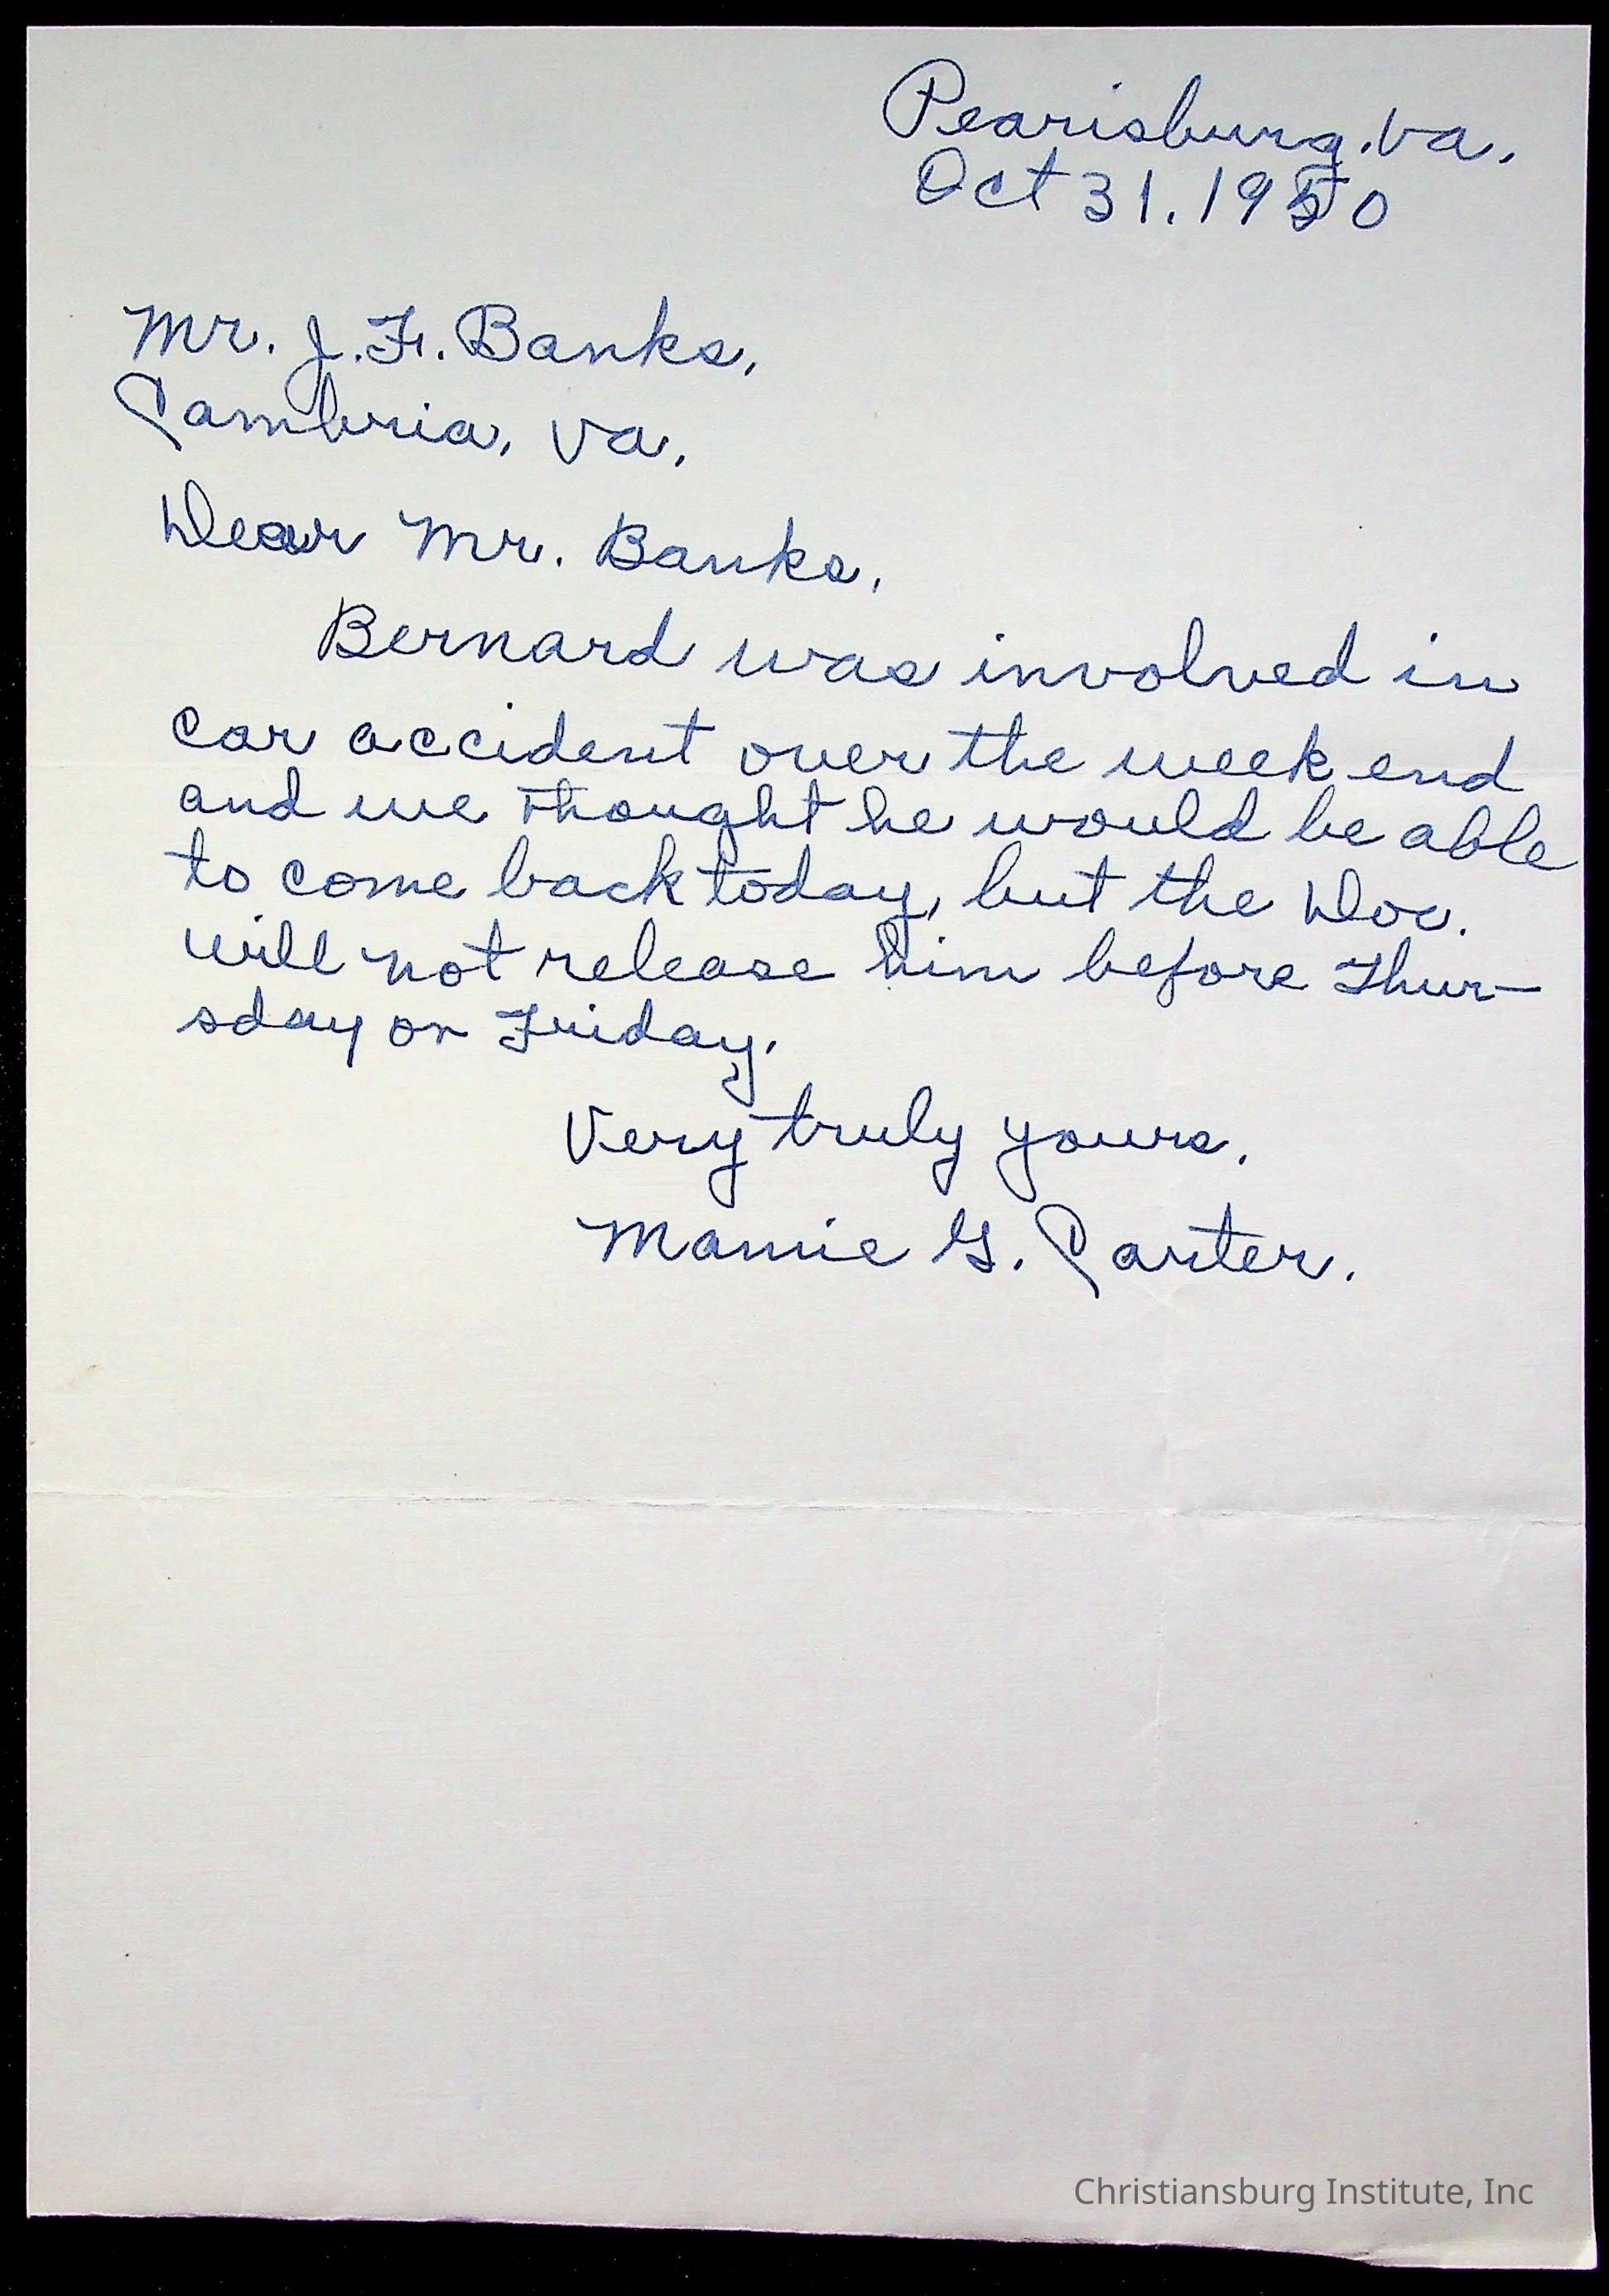 Pearisburg. Va.
Oct 31. 1950
Mr. J. F. Banks,
Cambria, Va,
Dear Mr. Banks,
Bernard was involved in
car accident over the week end
and we thought he would be able
to come back today, but the Doc.
will not release him before Thur-
sday or Friday.
Very truly yours,
Mamie G. Carter.
Christiansburg Institute, Inc